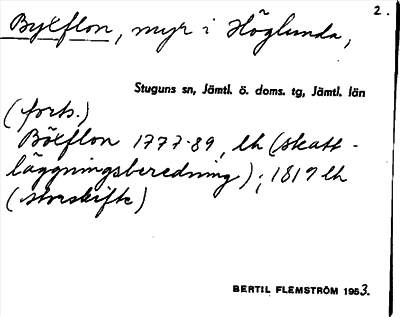 2.
Byxflon, myr i Höglunda,
Stuguns sn, Jämtl. ö. doms. tg, Jämtl. län
(forts.)
Böxflon 1777-89, lh (skatt-
läggningsberedning); 1819 lh
(storskifte)
BERTIL FLEMSTRÖM 1953.